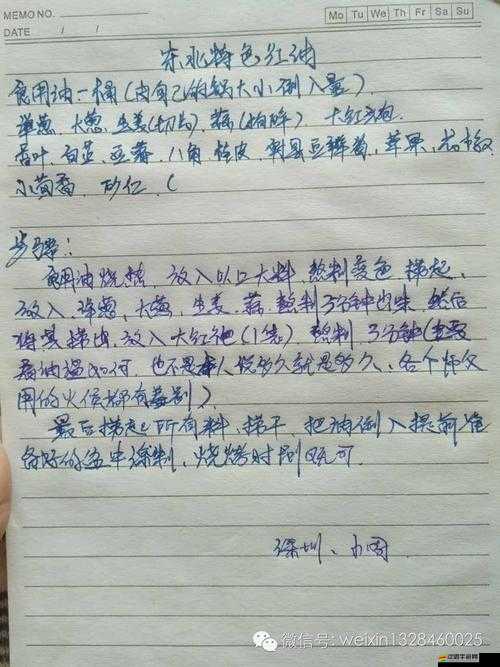 MEMO NO.
DATE / /
Mo Tu We Th Fr Sa Su
东北特色红油
食用油一桶(由自己的锅大小倒入量).
洋葱, 大葱, 生姜(切片), 蒜(拍碎) 大红袍
香叶, 白芷, 豆蔻, 八角, 桂皮, 郫县豆瓣酱, 苹果,
小茴香, 砂仁, (
步骤:
食用油烧热, 放入以上大料, 熬制变色 捞起,
放入, 洋葱, 大葱, 生姜, 蒜, 熬制3分钟出味, 然后
将其捞出, 放入大红袍(1袋), 熬制 3分钟(主要
看油温如何, 也不是本人说多久就是多久、各个师父
用的火候都有差别)
最后捞起所有料, 捞干 把油倒入提前准
备好的盆中 , 烧烤时刷既可.
深圳、小周
微信号: weixin1328460025